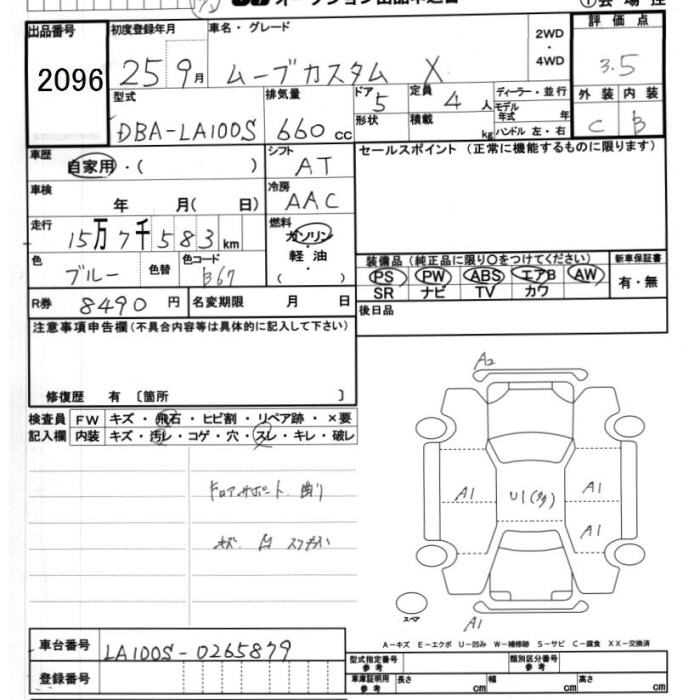 出品番号 2096
初度登録年月 25 9月
車名・グレード ムーブカスタム X
2WD・4WD
評価点 3.5
型式 DBA-LA100S
排気量 660cc
ドア 5
形状
定員 4人
積載 kg
ディーラー・並行
モデル年式 年
ハンドル 左・右
外装 C
内装 B
車歴 自家用・( )
シフト AT
セールスポイント(正常に機能するものに限ります)
車検 年 月( 日)
冷房 AAC
走行 15万7千583km
燃料 ガソリン・軽油・( )
色 ブルー 色替
色コード B67
装備品(純正品に限り○をつけてください)
PS PW ABS エアB AW
SR ナビ TV カワ
新車保証書 有・無
R券 8490円
名変期限 月 日
後日品
注意事項申告欄(不具合内容等は具体的に記入して下さい)
修復歴 有 〔箇所 〕
検査員記入欄
FW キズ・飛石・ヒビ割・リペア跡・×要
内装 キズ・汚レ・コゲ・穴・スレ・キレ・破レ
A2
A1
U1
A1
A1
A1
スペア
A-キズ E-エクボ U-凹み W-補修跡 S-サビ C-腐食 XX-交換済
車台番号 LA100S-0265879
登録番号
型式指定番号 参考
類別区分番号 参考
車庫証明用 参考 長さ cm 幅 cm 高さ cm